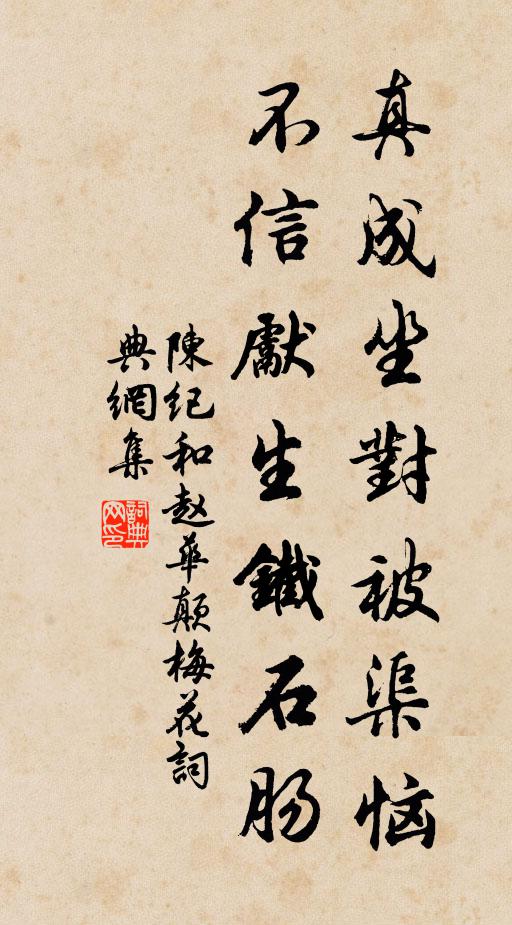 真成坐對被渠恼
不信獻生鐵石肠
陳纪和赵華颠梅花詞
典網集
詞典网印